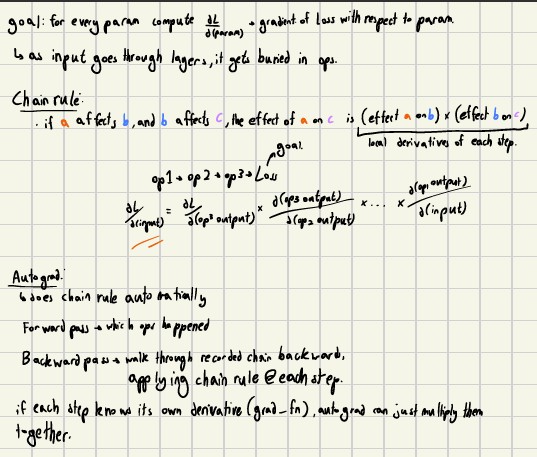 goal: for every param compute ∂L/∂(param) → gradient of Loss with respect to param.
↳ as input goes through layers, it gets buried in ops.
Chain rule:
. if a affects b, and b affects c, the effect of a on c is (effect a on b) × (effect b on c)
local derivatives of each step.
goal.
op1 → op2 → op3 → Loss
∂L/∂(input) = ∂L/∂(op3 output) × ∂(op3 output)/∂(op2 output) × ... × ∂(op1 output)/∂(input)
Autograd:
↳ does chain rule automatially
Forward pass → which ops happened
Backward pass → walk through recorded chain backward,
applying chain rule @ each step.
if each step knows its own derivative (grad_fn), autograd can just multiply them
together.